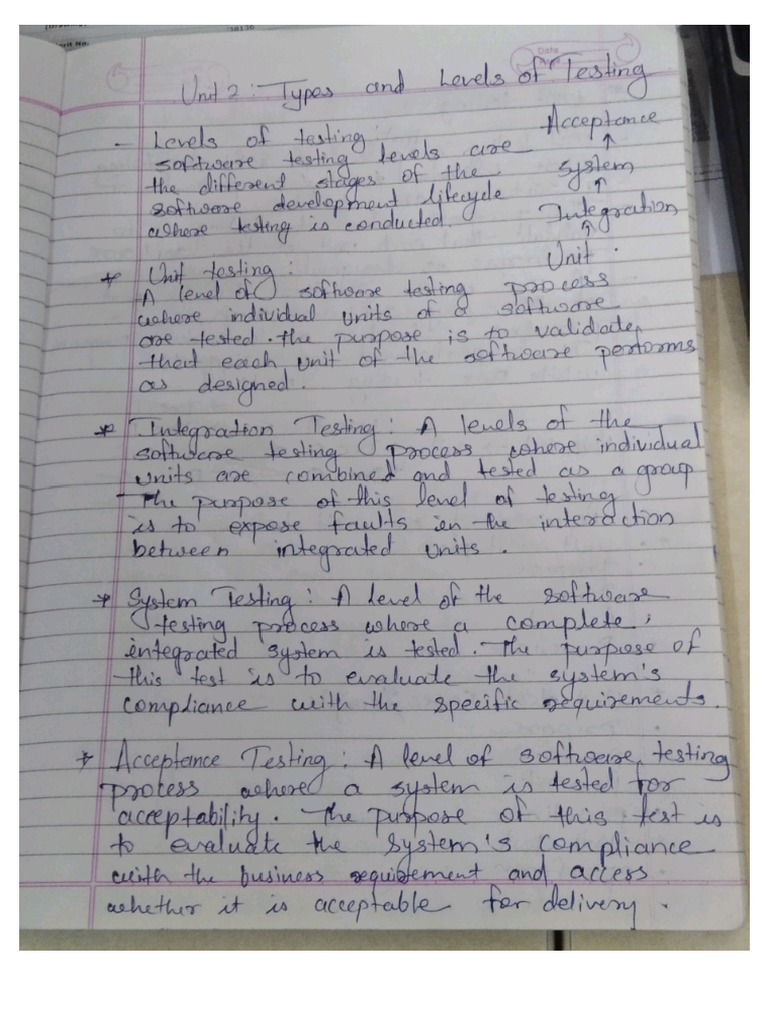 Date
Unit 2 : Types and Levels of Testing
- Levels of testing :
software testing levels are
the different stages of the
software development lifecycle
where testing is conducted.
Acceptance
↑
System
↑
Integration
↑
Unit.
* Unit testing :
A level of software testing process
where individual units of a software
are tested. the purpose is to validate
that each unit of the software performs
as designed.
* Integration Testing : A levels of the
software testing process where individual
units are combined and tested as a group
The purpose of this level of testing
is to expose faults in the interaction
between integrated units.
* System Testing : A level of the software
testing process where a complete,
integrated system is tested. The purpose of
this test is to evaluate the system's
compliance with the specific requirements.
* Acceptance Testing : A level of software testing
process where a system is tested for
acceptability. The purpose of this test is
to evaluate the system's compliance
with the business requirement and access
whether it is acceptable for delivery.